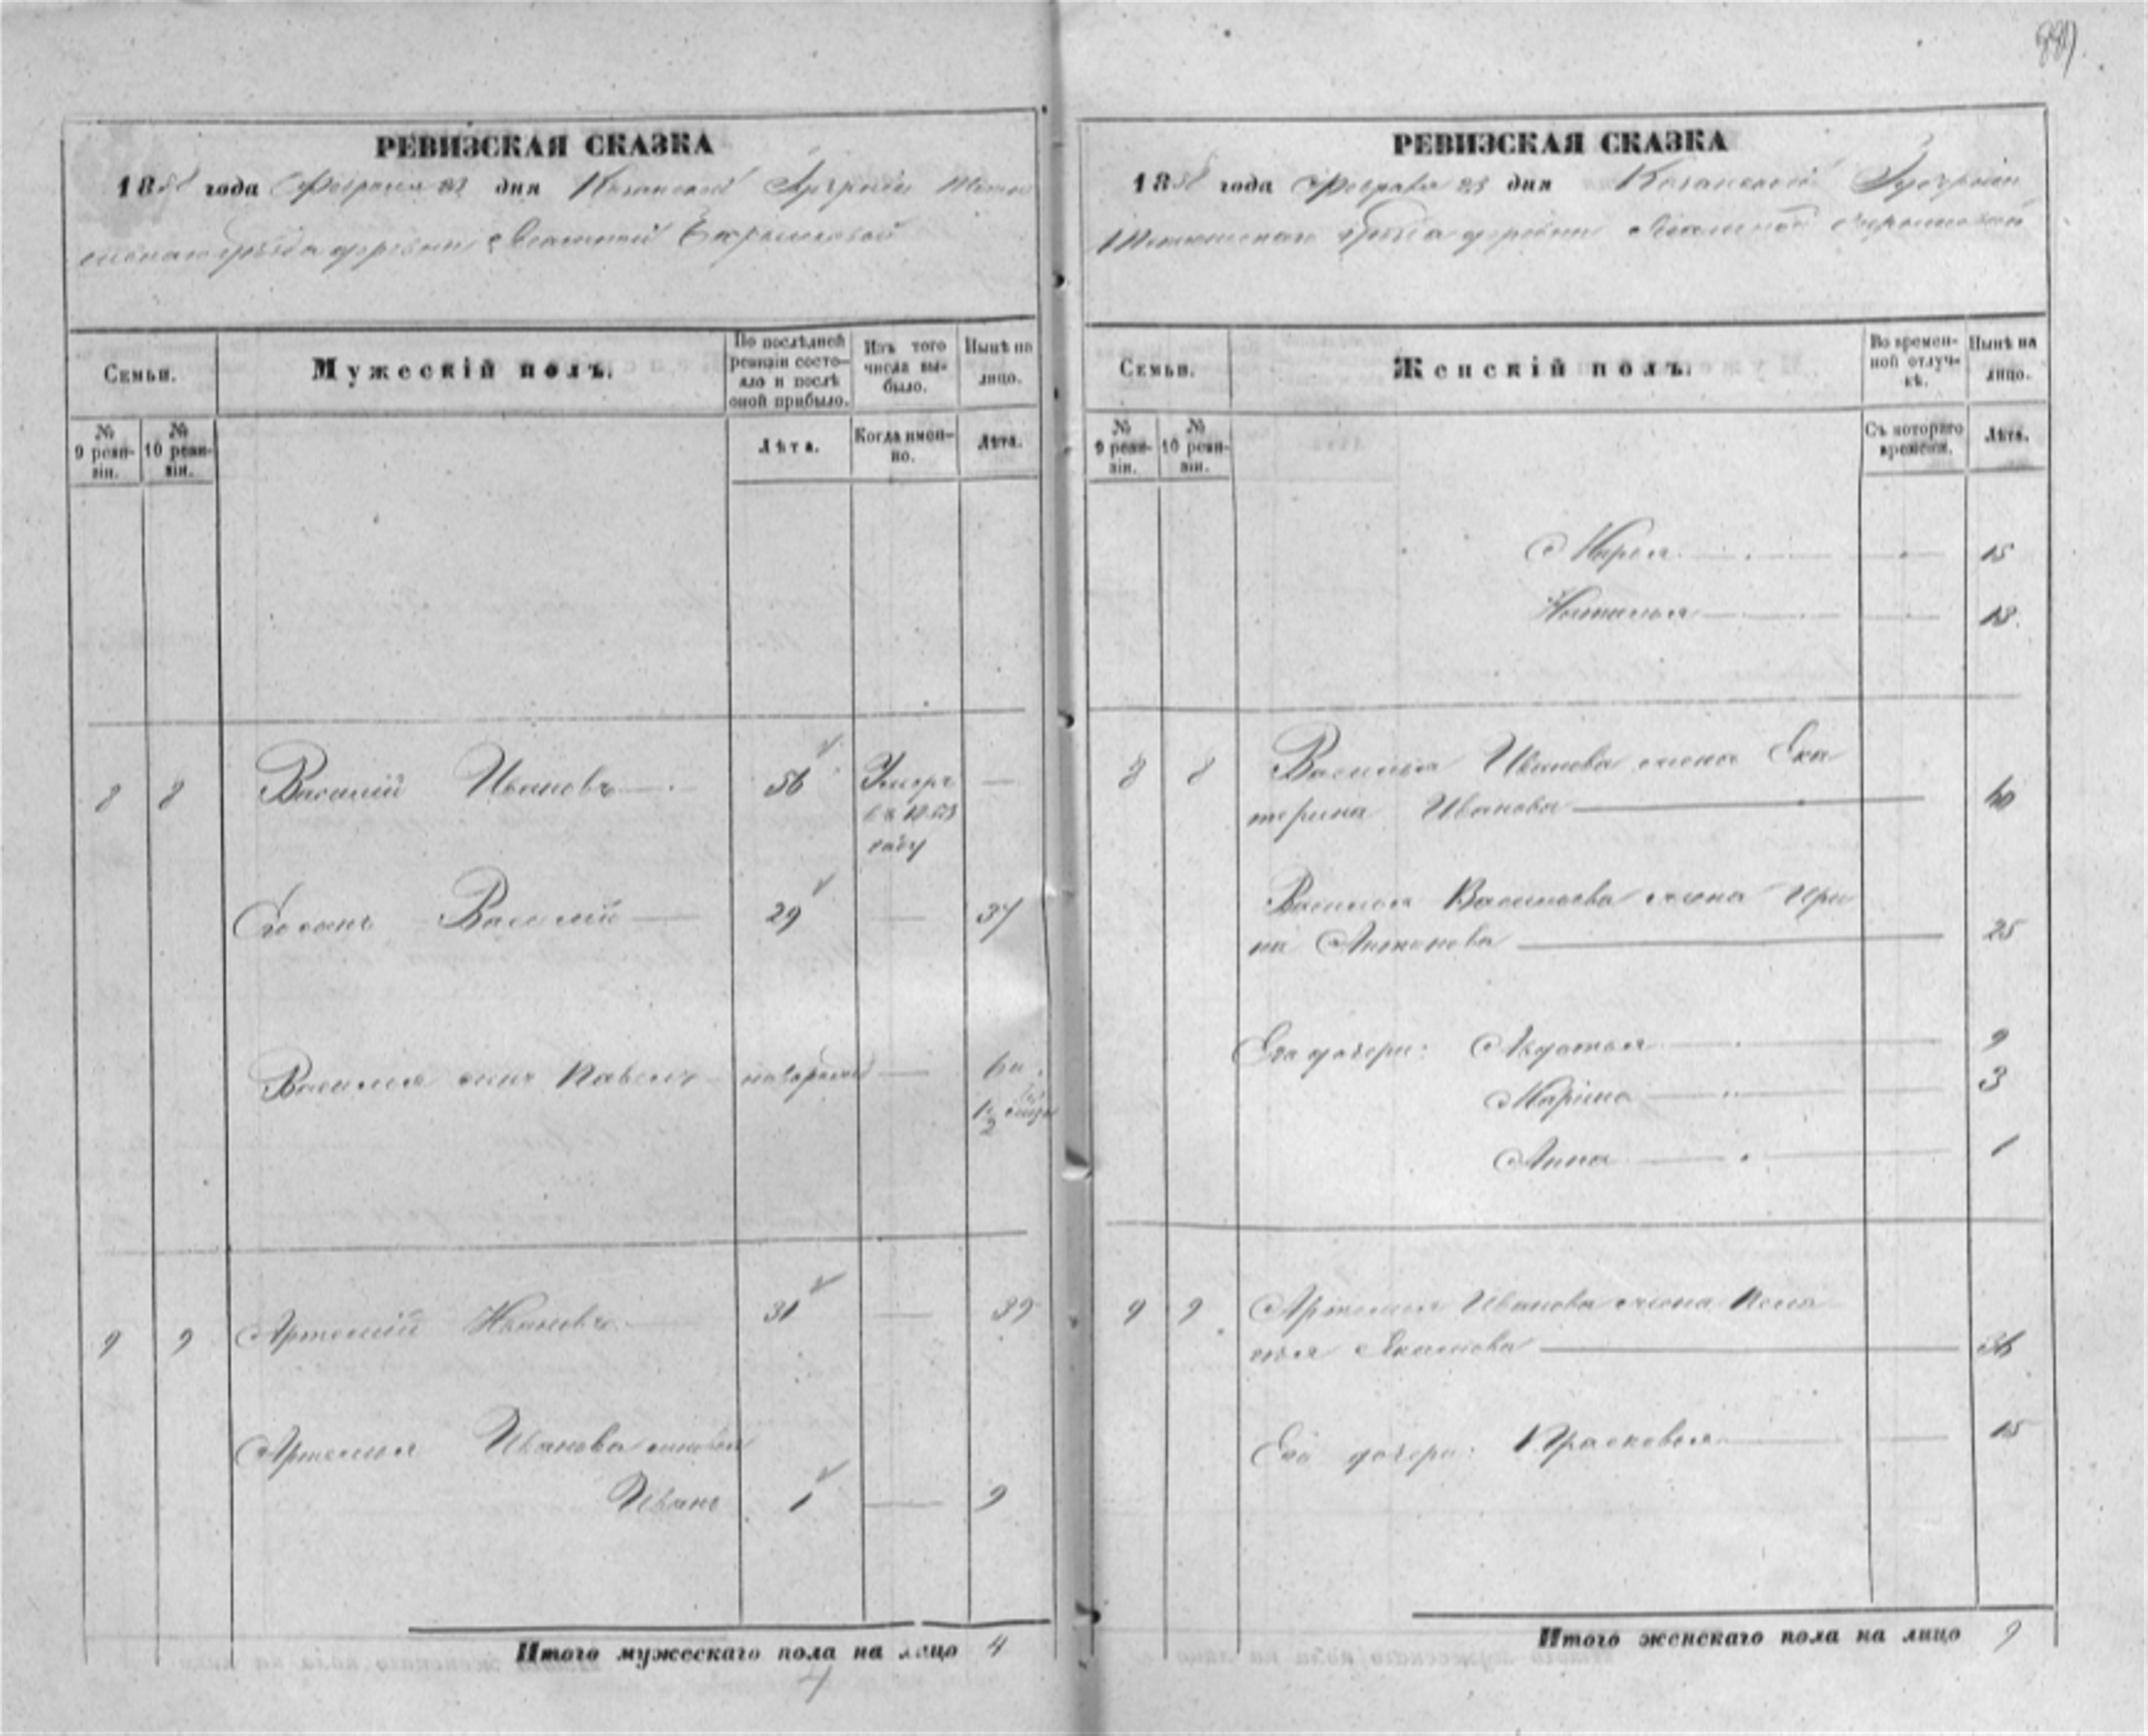 РЕВИЗСКАЯ СКАЗКА
1858 года Февраля 23 дня Казанской Губерніи Тетю
шскаго уѣзда деревни
Семьи.
Мужескій полъ.
По послѣдней ревизіи состо-
яло и послѣ
оной прибыло.
Изъ того
числа вы-
было.
Нынѣ на
лицо.
№
9 реви-
зіи.
№
10 реви-
зіи.
Лѣта.
Когда имен-
но.
Лѣта.
8 8 Василій Ивановъ 56 Умеръ —
въ 1853
году
Его сынъ Василий 29 — 37
Василья сынъ Павелъ новорожд —
1/2
9 9 Артемій Ивановъ 31 — 39
Артемья Иванова сыновья
Иванъ 1 — 9
Итого мужескаго пола на лицо 4
4
РЕВИЗСКАЯ СКАЗКА
1858 года Февраля 23 дня Казанской Губерніи
Тетюшскаго уѣзда деревни
Семьи.
Женскій полъ.
Во времен-
ной отлуч-
кѣ.
Нынѣ на
лицо.
№
9 реви-
зіи.
№
10 реви-
зіи.
Съ котораго
времени.
Лѣта.
15
Наталья 13
8 8 Василья Иванова жена Ека
терина Иванова 60
Василья Васильева жена Ири
на Антонова 25
Его дочери: Авдотья 9
Марина 3
Анна 1
9 9 Артемья Иванова жена Пела
гея 36
Его дочери: Прасковья 15
Итого женскаго пола на лицо 9